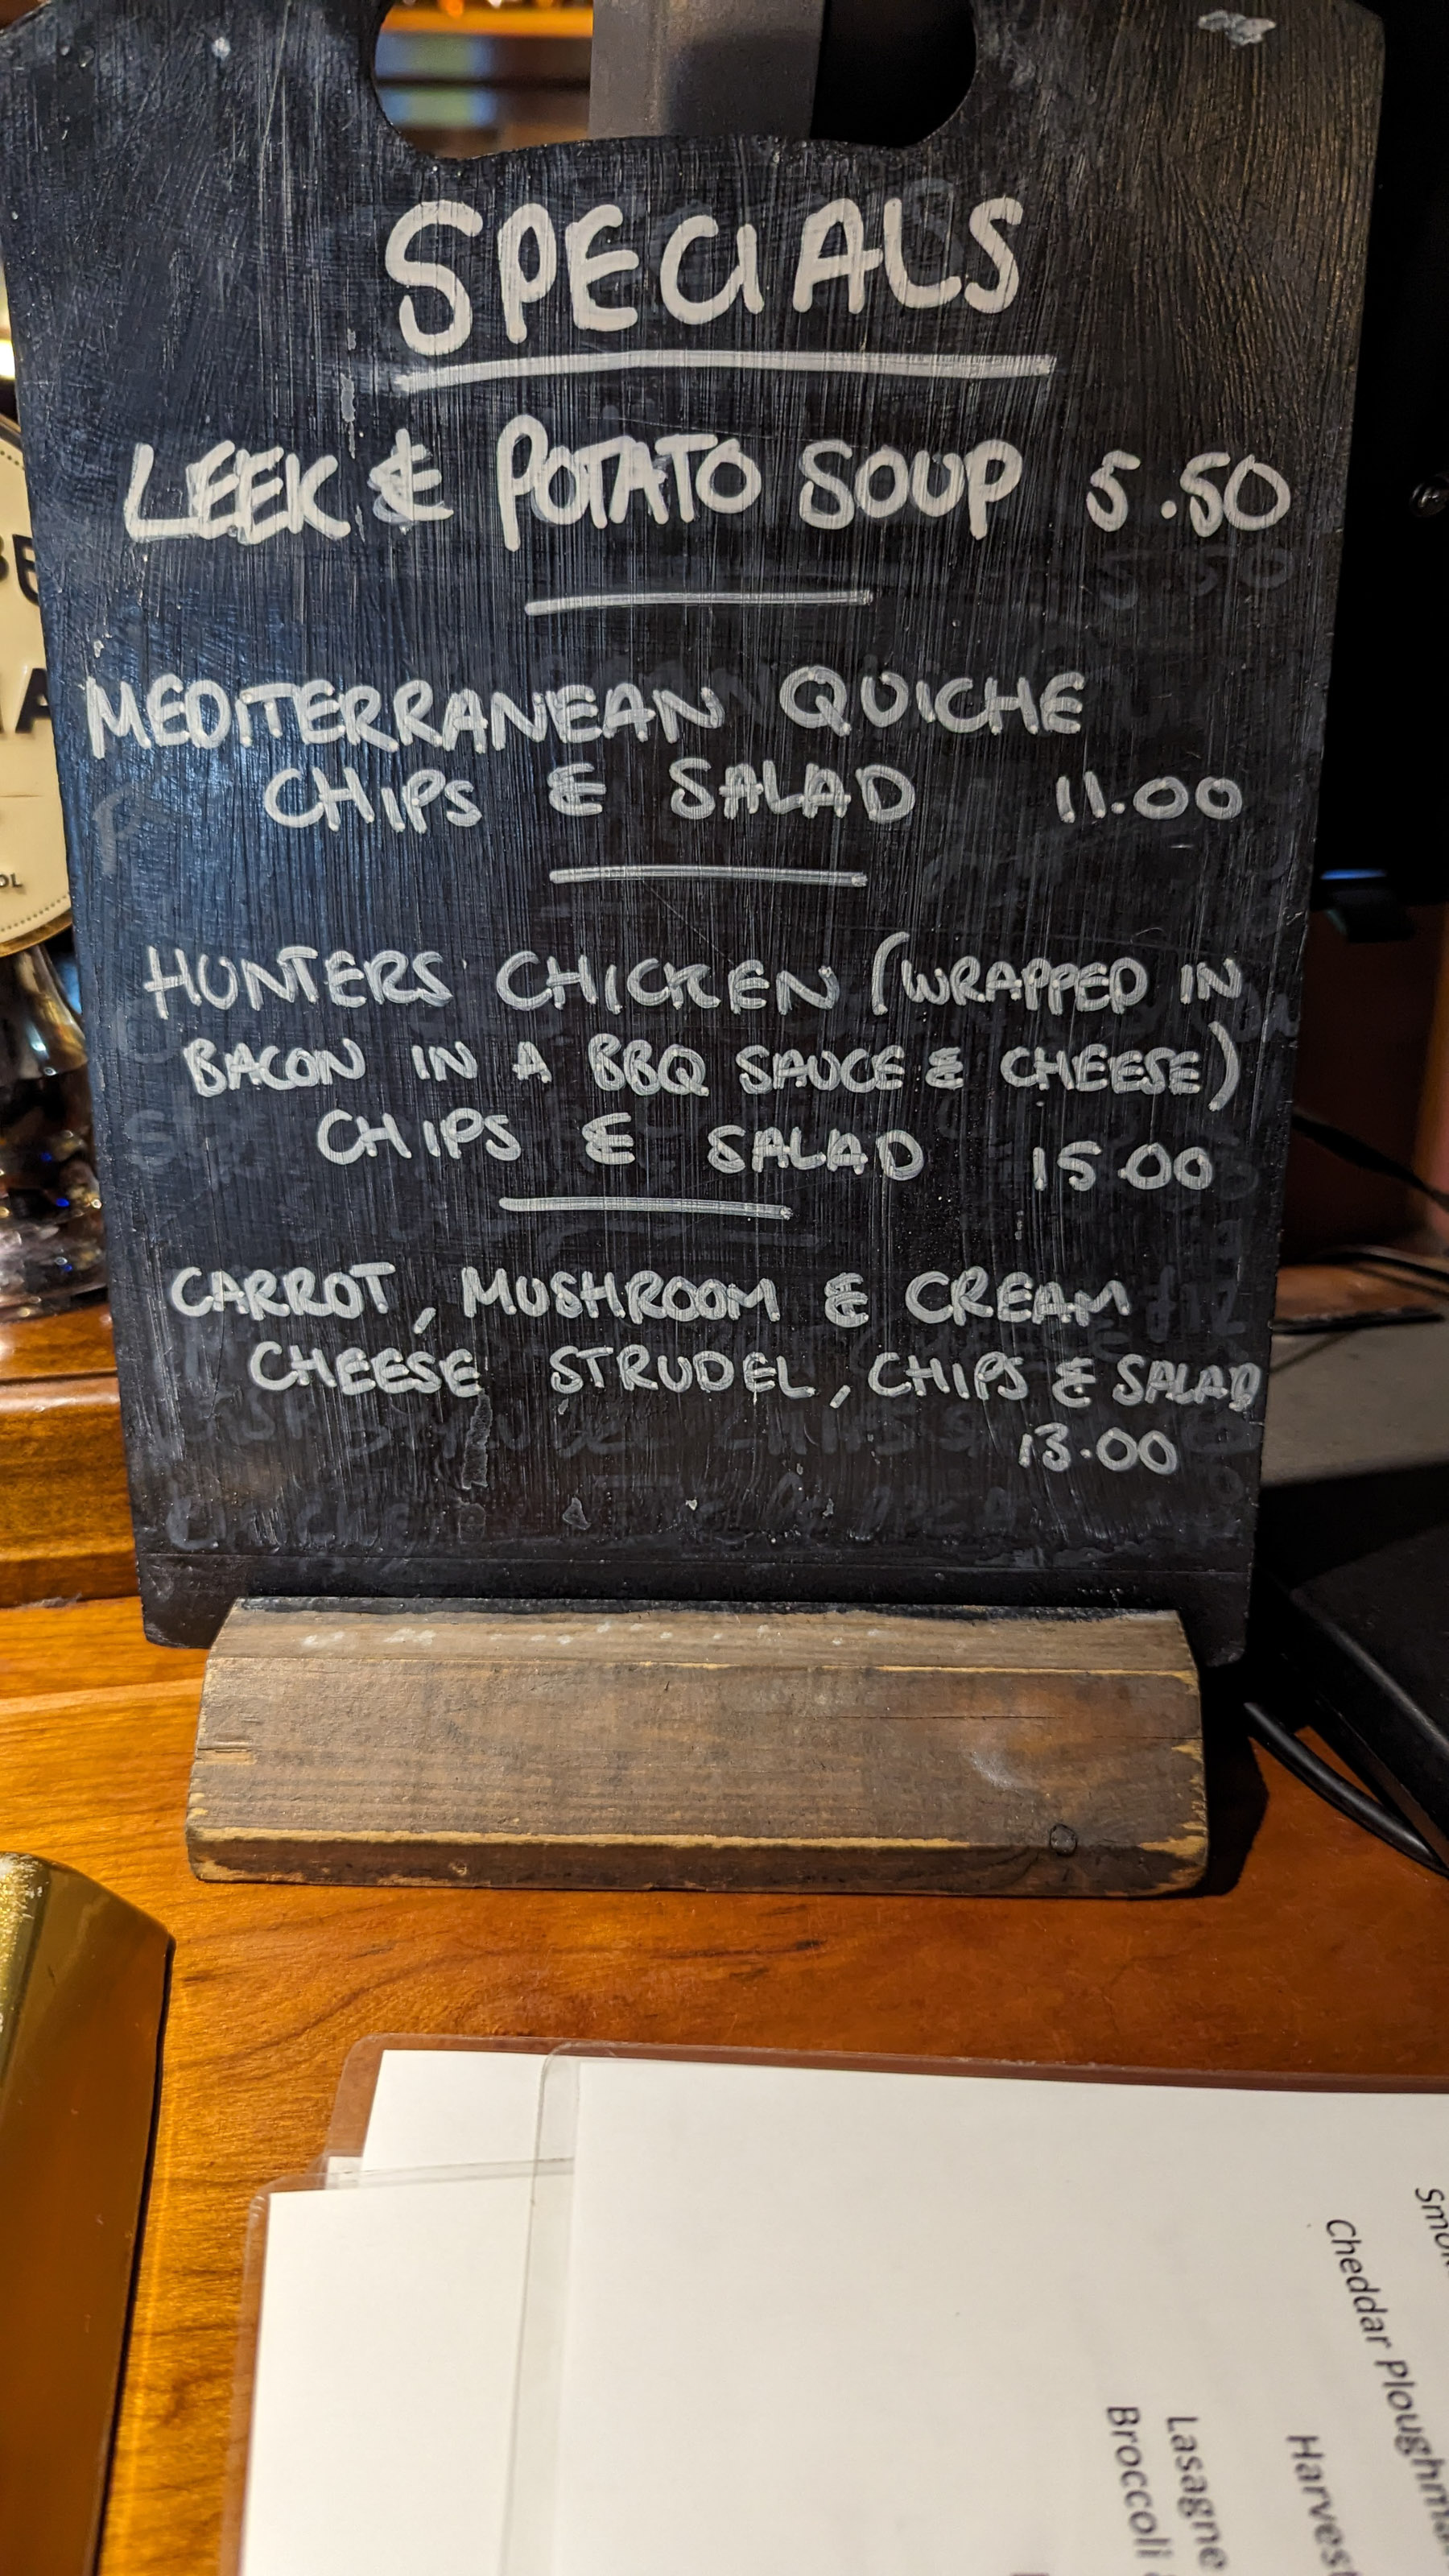 SPECIALS
LEEK & POTATO SOUP 5.50
MEDITERRANEAN QUICHE
CHIPS & SALAD 11.00
HUNTERS CHICKEN (WRAPPED IN
BACON IN A BBQ SAUCE & CHEESE)
CHIPS & SALAD 15.00
CARROT, MUSHROOM & CREAM
CHEESE STRUDEL, CHIPS & SALAD
13.00
Cheddar
Harvest
Lasagne
Broccoli